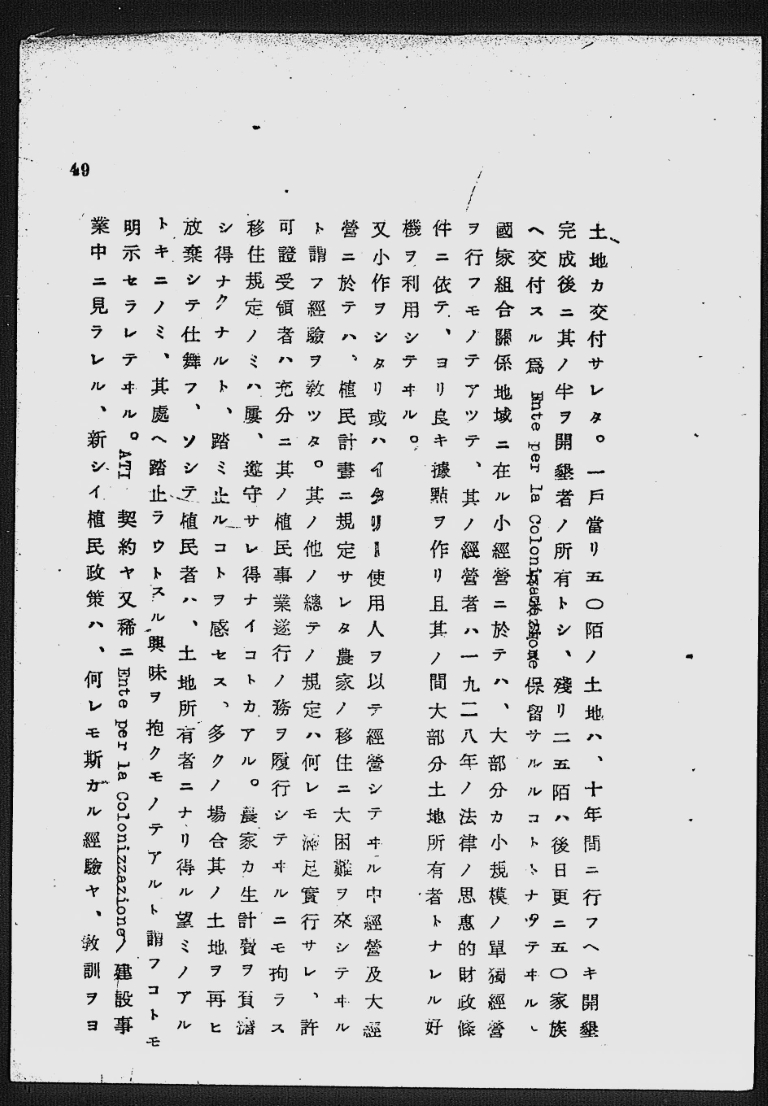 土地カ交付サレタ。一戸當リ五〇陌ノ土地ハ、十年間ニ行フヘキ開墾
完成後ニ其ノ半ヲ開墾者ノ所有トシ、殘リ二五陌ハ後日更ニ五〇家族
ヘ交付スル爲 Ente per la Colonizzazione 保留サルルコトトナツテヰル、
國家組合關係地域ニ在ル小經營ニ於テハ、大部分カ小規模ノ單獨經營
ヲ行フモノテアツテ、其ノ經營者ハ一九二八年ノ法律ノ恩惠的財政條
件ニ依テ、ヨリ良キ據點ヲ作リ且其ノ間大部分土地所有者トナレル好
機ヲ利用シテヰル。
又小作ヲシタリ或ハイタリー使用人ヲ以テ經營シテヰル中經營及大經
營ニ於テハ、植民計畫ニ規定サレタ農家ノ移住ニ大困難ヲ來シテヰル
ト謂フ經驗ヲ敎ツタ。其ノ他ノ總テノ規定ハ何レモ滿足實行サレ、許
可證受領者ハ充分ニ其ノ植民事業遂行ノ務ヲ履行シテヰルニモ拘ラス
移住規定ノミハ屢、遵守サレ得ナイコトカアル。農家カ生計費ヲ負擔
シ得ナクナルト、踏ミ止ルコトヲ感セス、多クノ場合其ノ土地ヲ再ヒ
放棄シテ仕舞フ、ソシテ植民者ハ、土地所有者ニナリ得ル望ミノアル
トキニノミ、其處ヘ踏止ラウトスル興味ヲ抱クモノテアルト謂フコトモ
明示セラレテヰル。ATI 契約ヤ又稀ニ Ente per la Colonizzazione ノ建設事
業中ニ見ラレル、新シイ植民政策ハ、何レモ斯カル經驗ヤ、敎訓ヲヨ
49